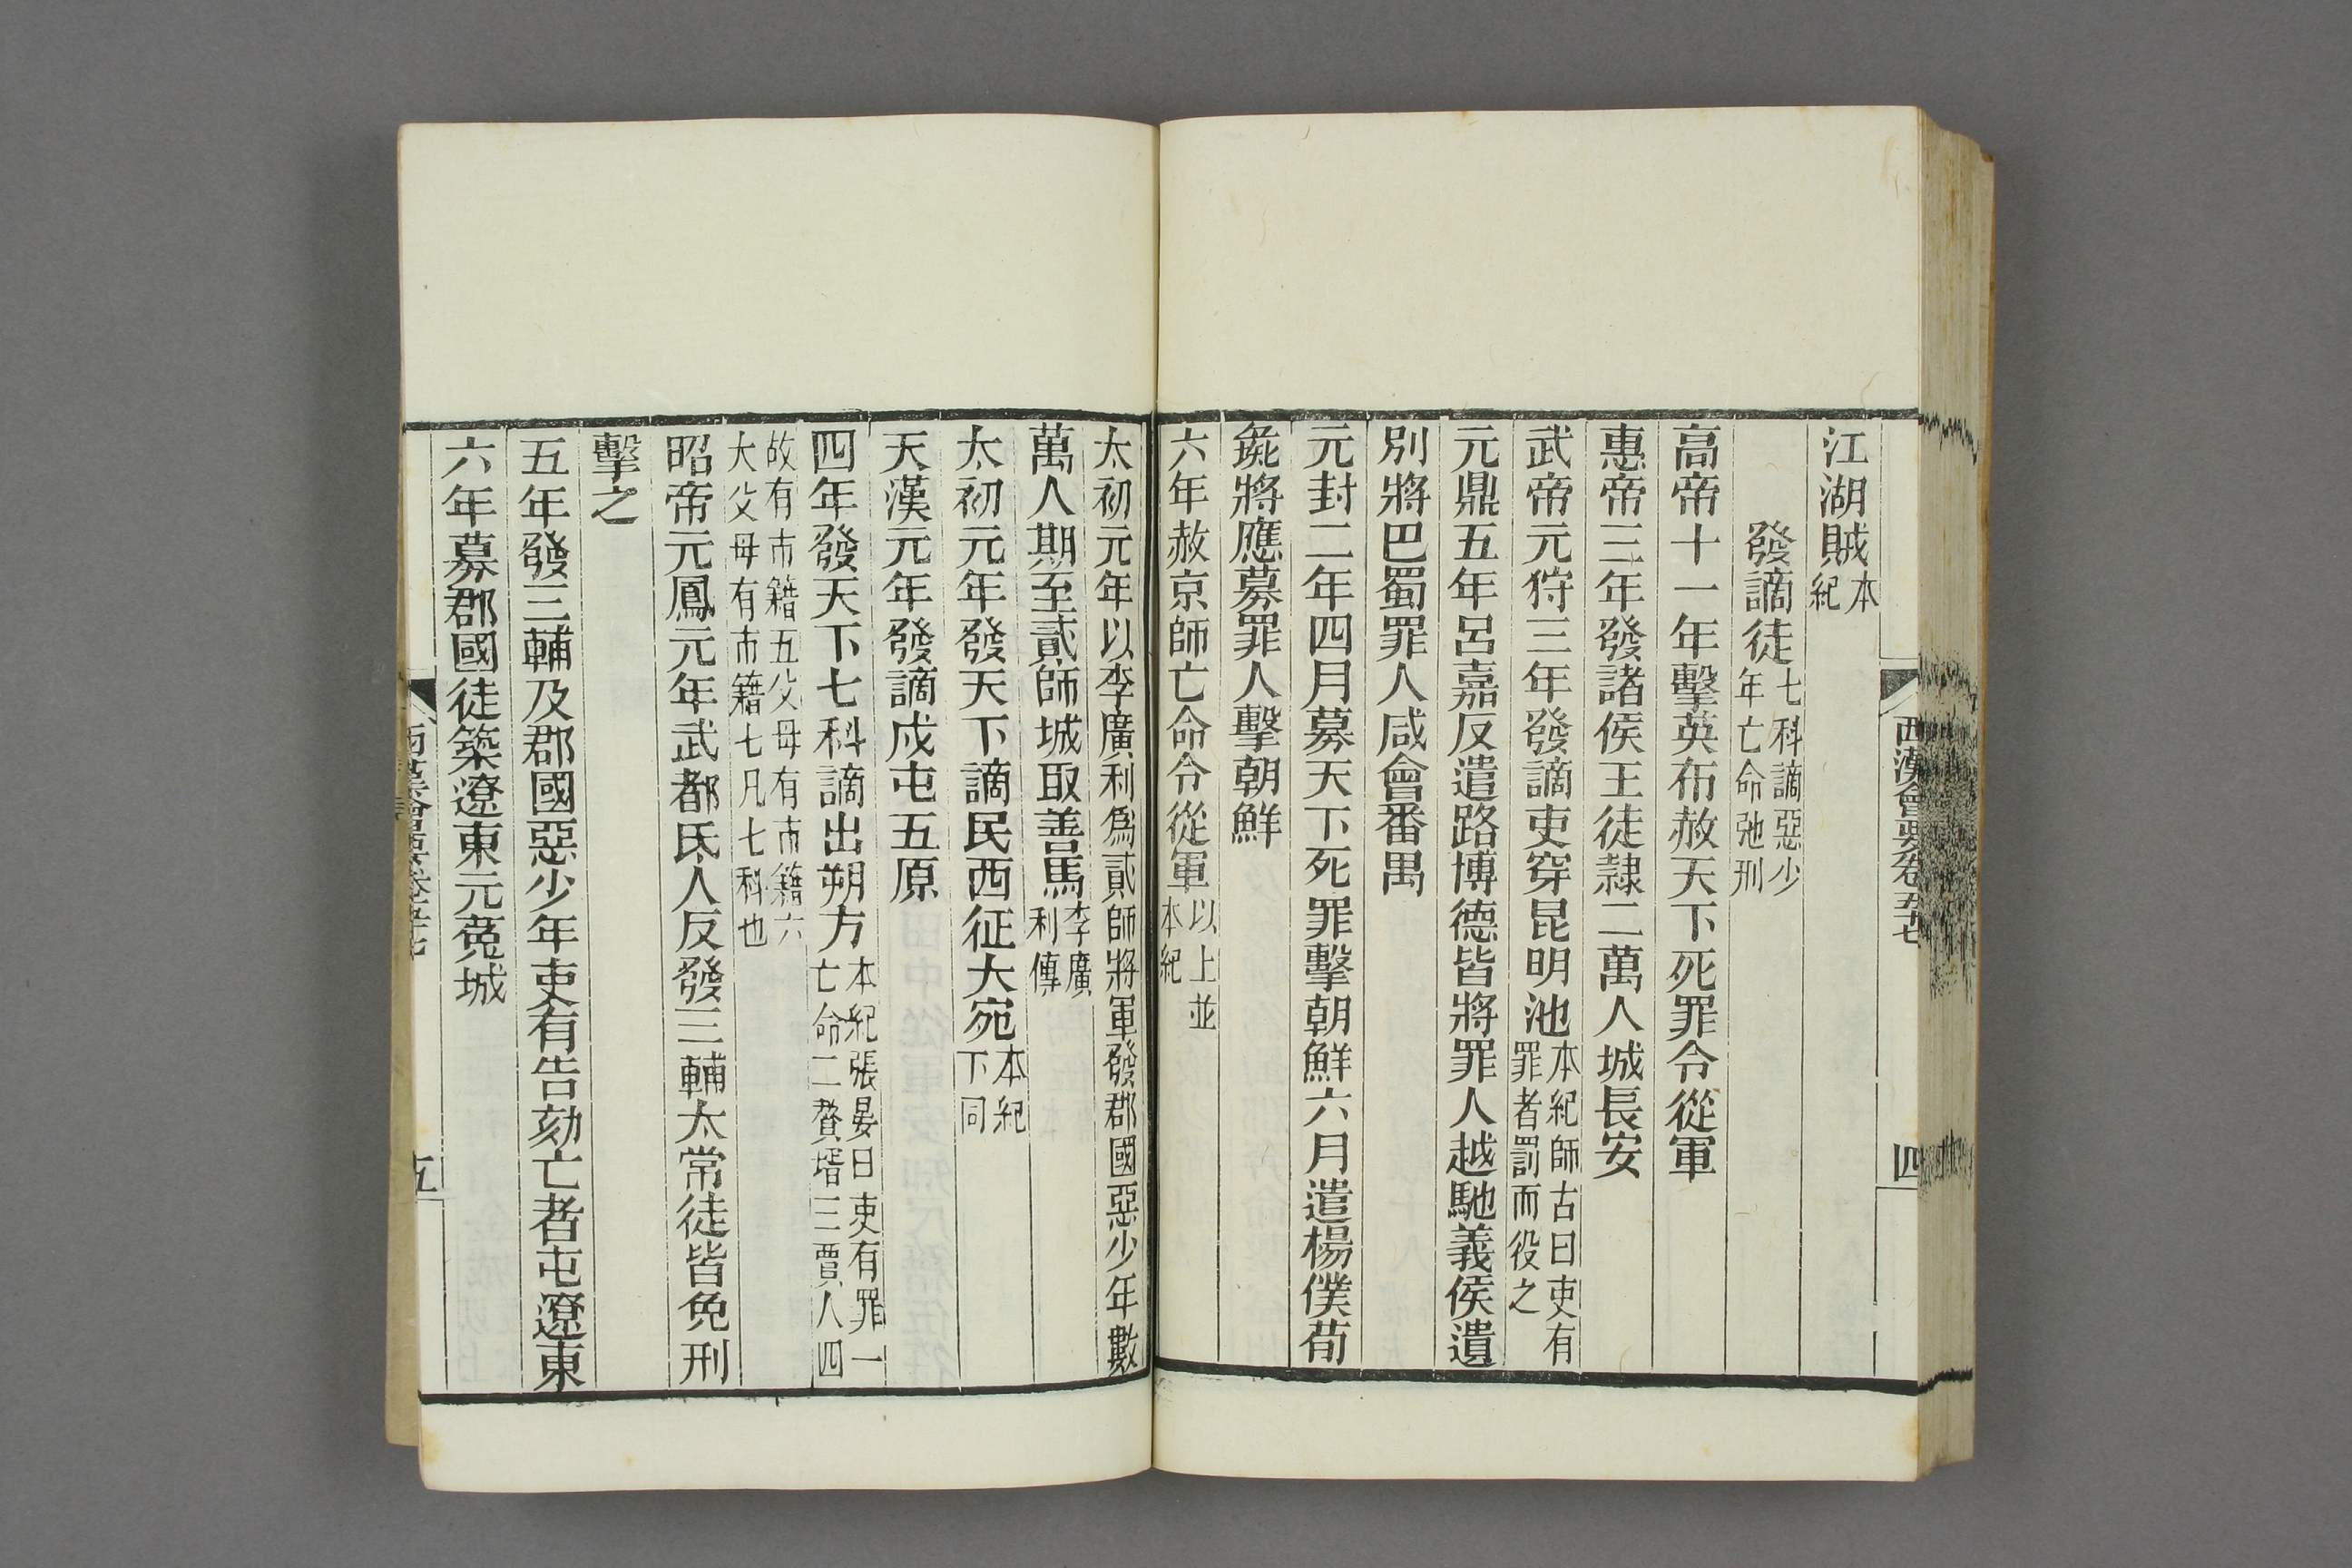 西漢會要卷五十七
四
江湖賊本紀
發謫徒七科謫惡少年亡命弛刑
高帝十一年擊英布赦天下死罪令從軍
惠帝三年發諸侯王徒隸二萬人城長安
武帝元狩三年發謫吏穿昆明池本紀師古曰吏有罪者罰而役之
元鼎五年呂嘉反遣路博德皆將罪人越馳義侯遺
別將巴蜀罪人咸會番禺
元封二年四月募天下死罪擊朝鮮六月遣楊僕荀
彘將應募罪人擊朝鮮
六年赦京師亡命令從軍以上並本紀
太初元年以李廣利爲貳師將軍發郡國惡少年數
萬人期至貳師城取善馬李廣利傳
太初元年發天下謫民西征大宛本紀下同
天漢元年發謫戍屯五原
四年發天下七科謫出朔方本紀張晏曰吏有罪一亡命二贅壻三賈人四
故有市籍五父母有市籍六大父母有市籍七凡七科也
昭帝元鳳元年武都氐人反發三輔太常徒皆免刑
擊之
五年發三輔及郡國惡少年吏有告劾亡者屯遼東
六年募郡國徒築遼東元菟城
西漢會要卷五十七
五